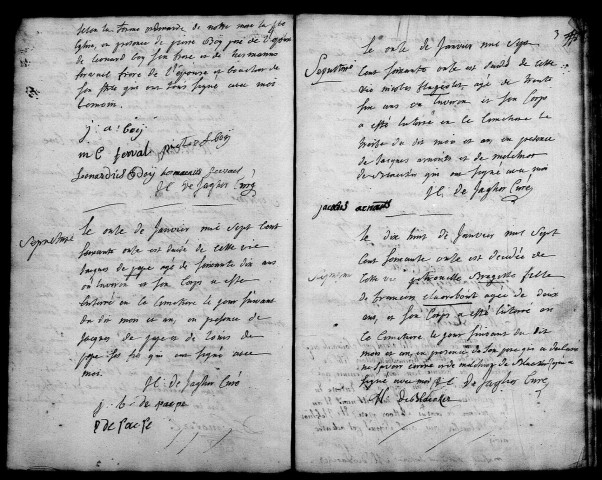 Selon la forme ordonnée de notre mere la ste
Eglise, en presence de pierre Boÿ pere de l'epoux
de leonard Boÿ son frere et de hermanus
ferval frere de l'épouse et
qui ont signé avec moi
j: a: boij
m C ferval pieter Boij
Leonardus Boij hermanus ferval
H. de Jaghor Curé
Sepulture
le onze de Janvier mil Sept Cent
soixante onze est decidé de cette vie
Jaques de pape agé de soixante dix ans
ou Environ et son Corps a esté
Enterré en la Cimetiere le jour suivant
du dit mois et an, en presence de
Jacques de pape et de Louis de
pape ses fils qui ont signé avec
moi.
H. de Jaghor Curé
j: b: de paepe
P de PaePe
3
Sepulture
le onze de Janvier mil Sept
Cent soixante onze est decidé de cette
vie nicolas agé de trente
six ans ou Environ et son Corps
a esté Enterré en la Cimetiere le
treize du dit mois et an, en presence
de Jacques arnouts et de melchior
de Blaecker qui ont signé avec moi
H. de Jaghor Curé
jacobus arnouts
Sepulture
le dix huit de Janvier mil Sept
Cent soixante onze est decedée de
Cette vie petronelle fille
de francois agée de deux
ans, et son Corps a esté Enterré en
la Cimetiere le jour suivant du dit
mois et an, en presence de son pere qui a declaré
ne sçavoir ecrire et de melchior de Blaecker qui a
signé avec moi H. de Jaghor Curé
M. deBlaecker